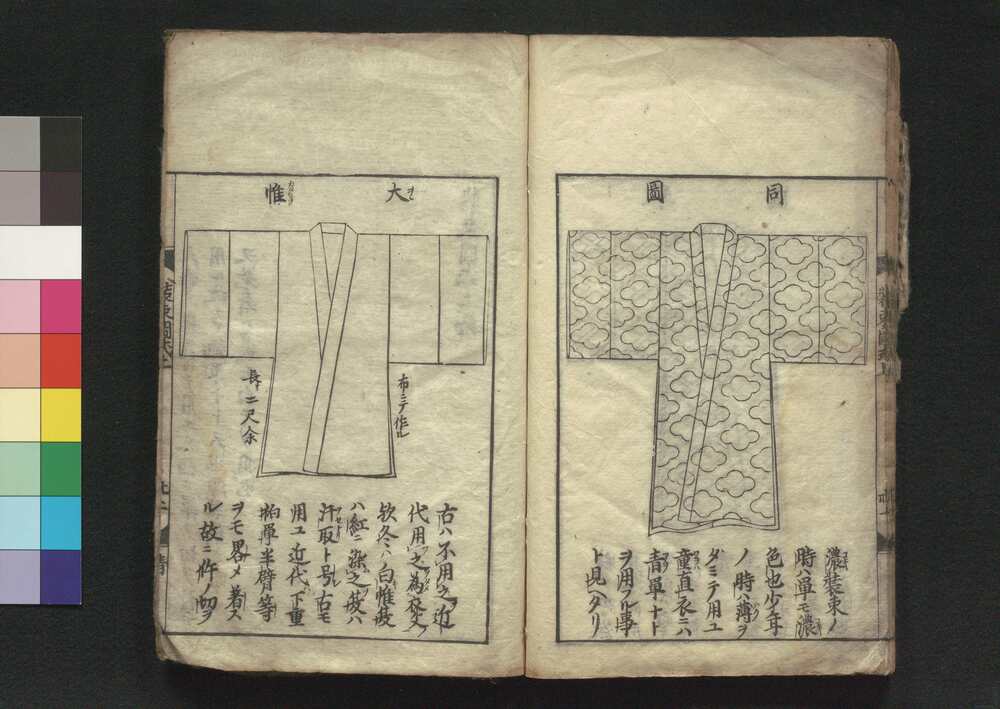 同圖
濃装束ノ
時ハ單モ濃
色也少年
ノ時ハ薄ヲ
ダミテ用ユ
童直衣ニハ
青單ナト
ヲ用フル事
ト見ヘタリ
大帷
布ニテ作ル
長ニ尺余
古ハ不用之近
代用之為
欤冬ハ白帷
ハ紅ニ染之
汗取ト号古モ
用ユ近代下重
袙單半臂等
ヲモ畧メ着ス
ル故ニ